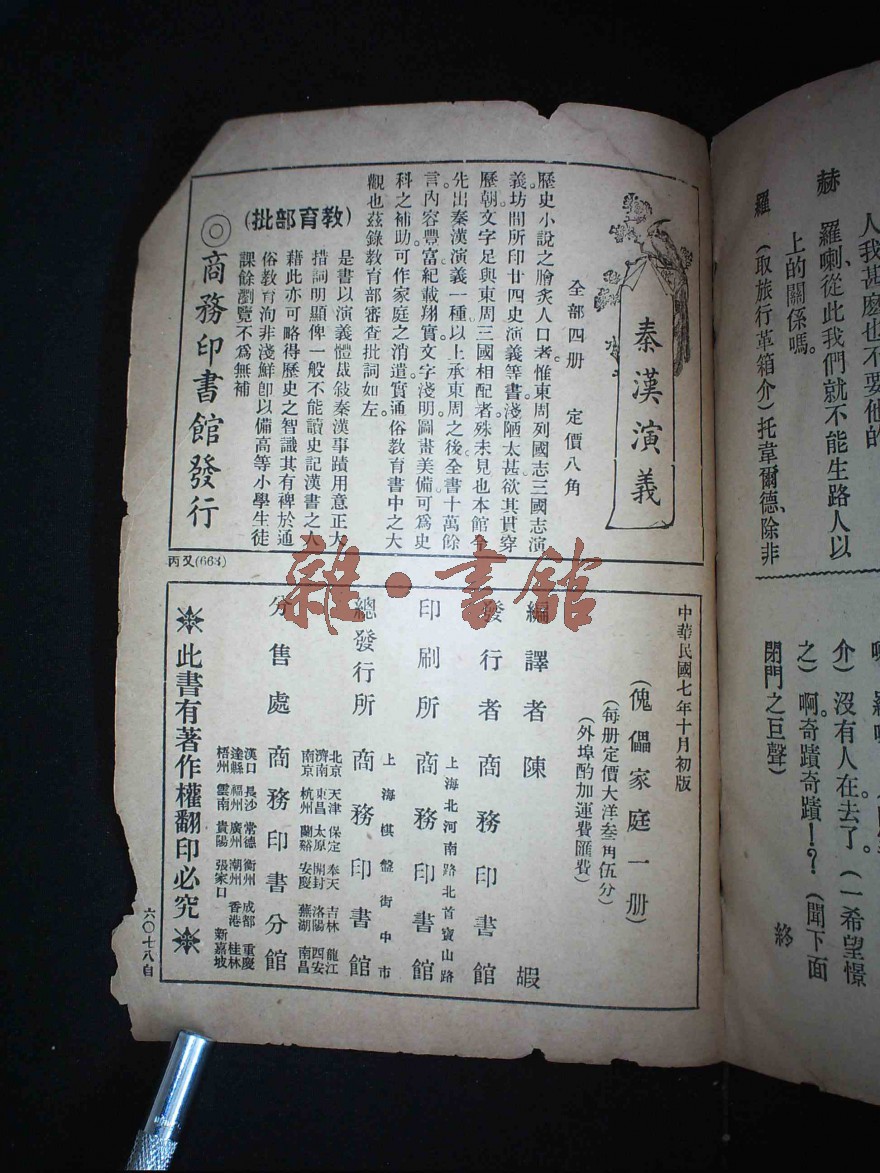 人我甚麽也不要他的
赫 羅喇、從此我們就不能生路人以
上的關係嗎。
羅 (取旅行革箱介)托韋爾德、除非
介)沒有人在去了。(一希望憬
之)啊奇蹟奇蹟!?(聞下面
閉門之巨聲) 終
秦漢演義
全部四册 定價八角
歷史小說之膾炙人口者惟東周列國志三國志演
義。坊間所印廿四史演義等書淺陋太甚欲其貫穿
歷朝文字足與東周三國相配者殊未見也本館今
先出秦漢演義一種以上承東周之後全書十萬餘
言內容豐富紀載翔實。文字淺明圖畫美備可爲史
科之補助可作家庭之消遣實通俗教育書中之大
觀也茲錄教育部審查批詞如左。
(教育部批)
是書以演義體裁敍秦漢事蹟用意正大
措詞明顯俾一般不能讀史記漢書之人
藉此亦可略得歷史之智識其有裨於通
俗教育洵非淺鮮卽以備高等小學生徒
課餘瀏覽不爲無補
◎商務印書館發行
丙又(663)
中華民國七年十月初版
(傀儡家庭一册)
(每册定價大洋叁角伍分)
(外埠酌加運費匯費)
編譯者 陳嘏
發行者 商務印書館
上海北河南路北首寶山路
印刷所 商務印書館
上海棋盤街中市
總發行所 商務印書館
北京 天津 保定 奉天 吉林 龍江
濟南 東昌 太原 開封 洛陽 西安
南京 杭州 蘭谿 安慶 蕪湖 南昌
分售處 商務印書分館
漢口 長沙 常德 衡州 成都 重慶
達縣 福州 廣州 潮州 香港 桂林
梧州 雲南 貴陽 張家口 新嘉坡
※此書有著作權翻印必究※
六〇七八自
雜·書館